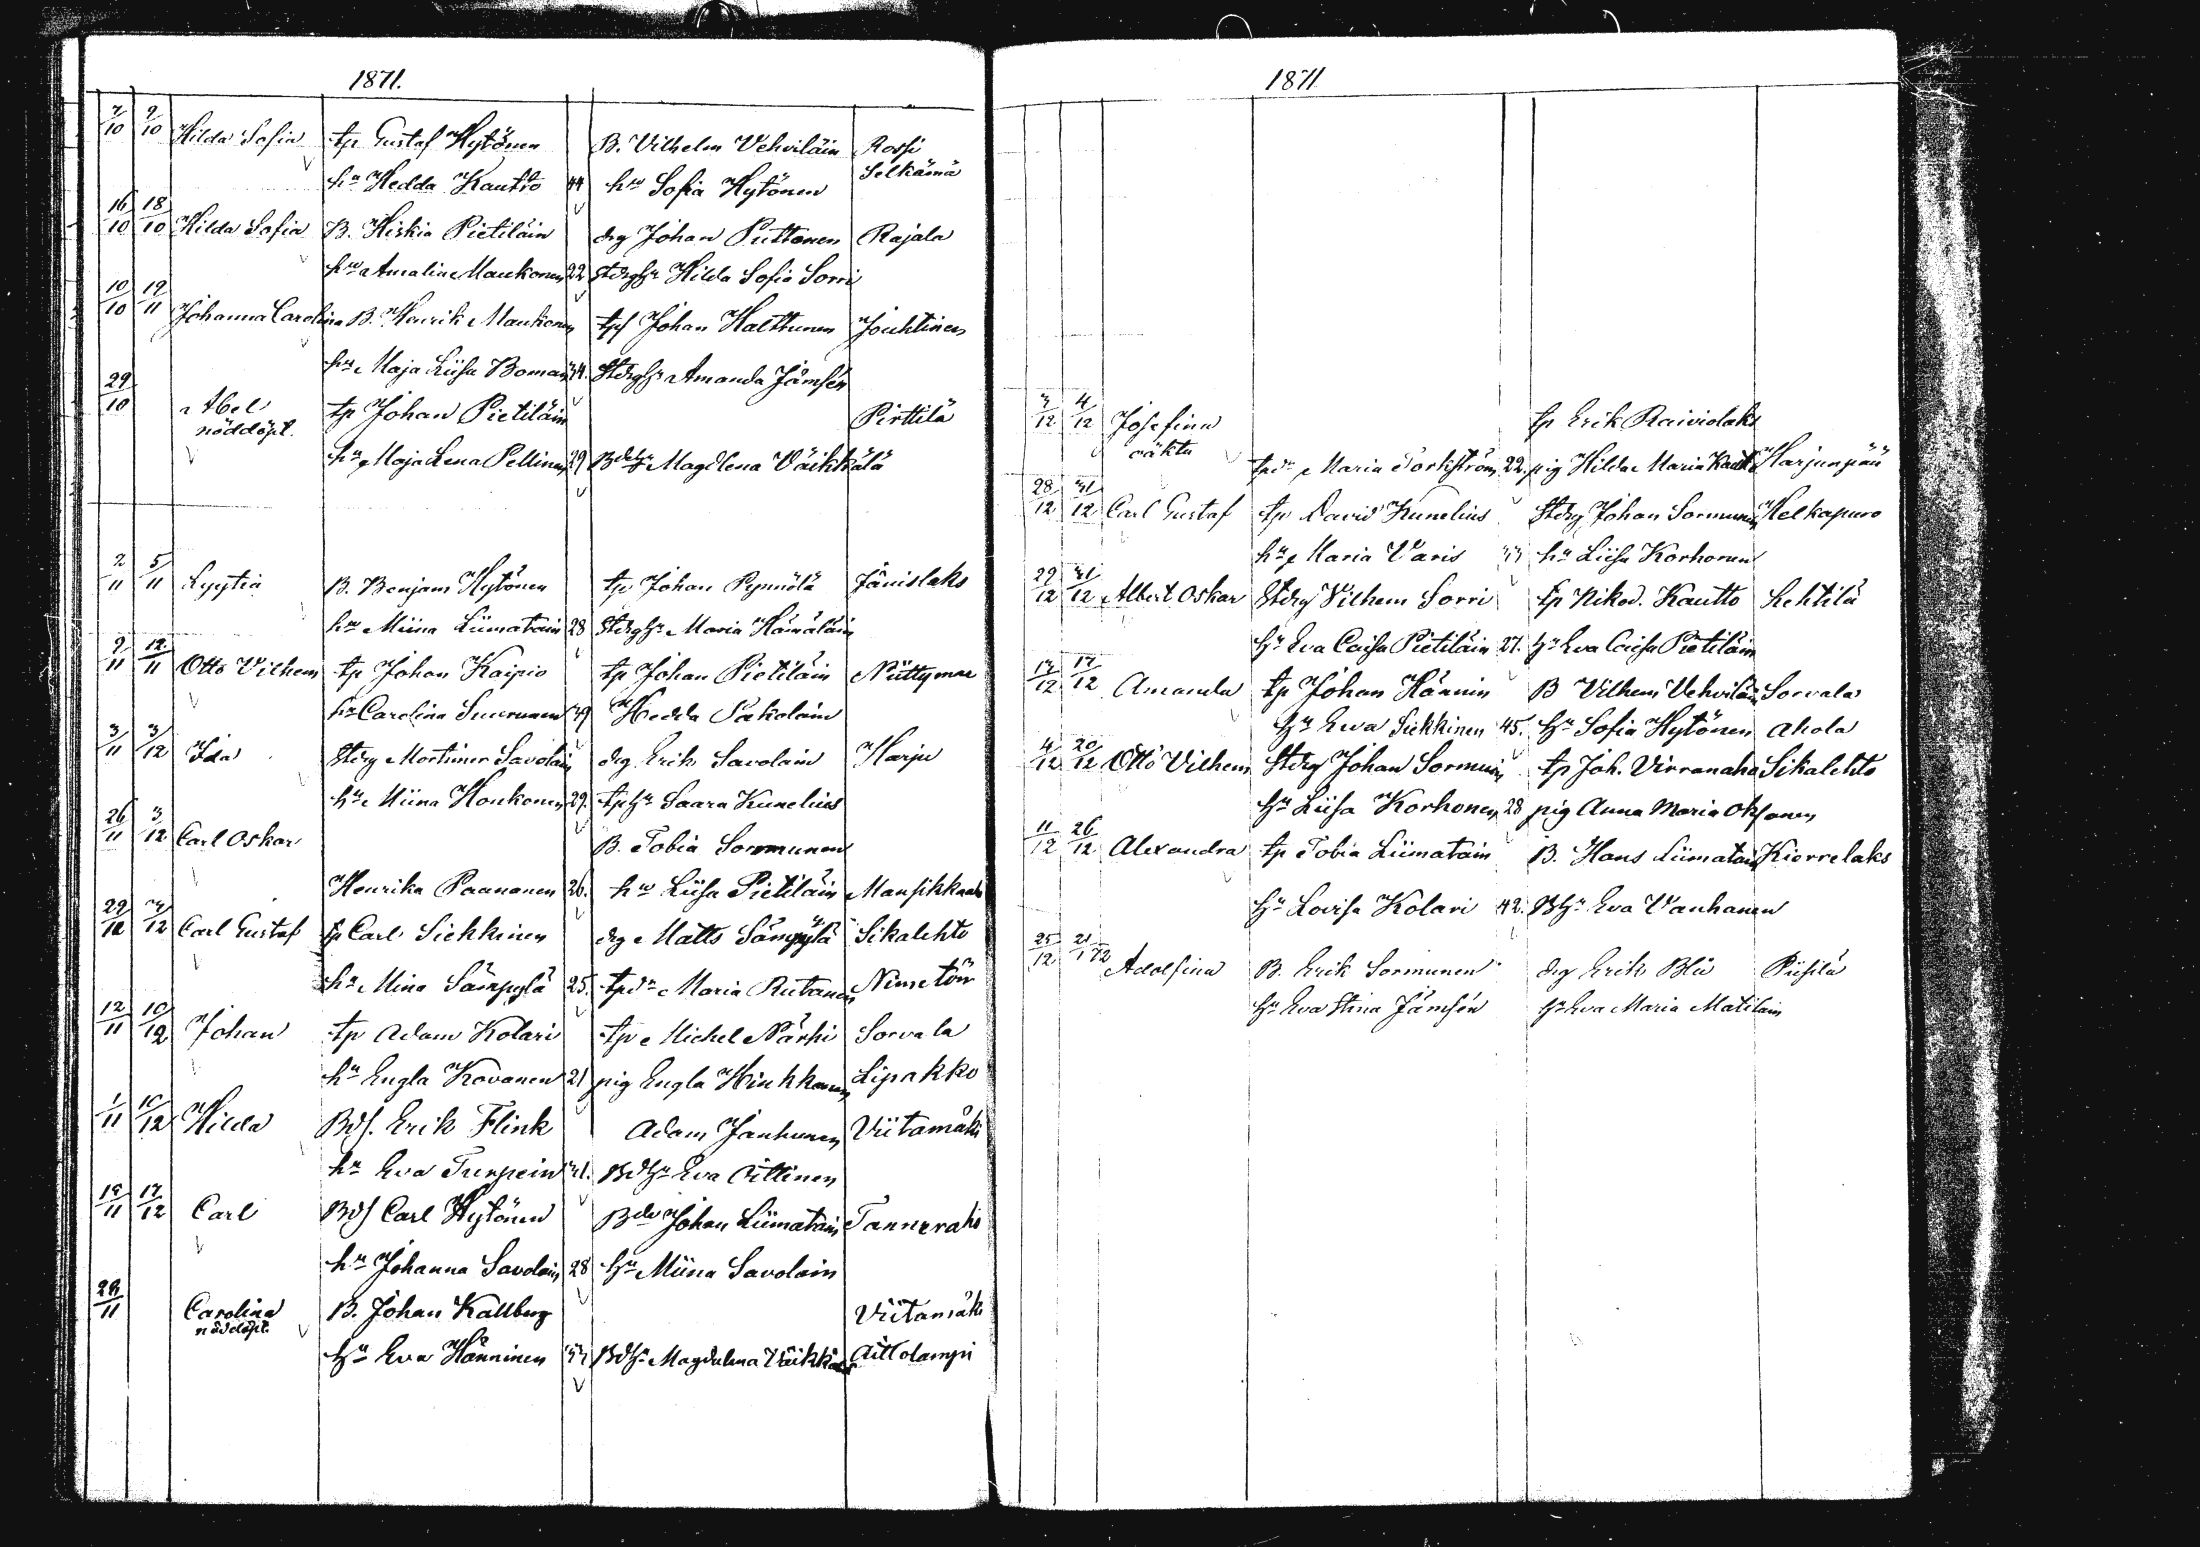 1871.
7/10 9/10 Hilda Sofia tp Gustaf Hytönen B. Vilhelm Vehviläin Rossi
hu Hedda Kautto 44 hu Sofia Hytönen Selkämä
16/10 18/10 Hilda Sofia B. Hiskia Pietiläin drg Johan Puttonen Rajala
hu Amalia Maukonen 22 Stdrghu Hilda Sofia Sorri
10/10 12/11 Johanna Carolina B. Henrik Maukonen tps Johan Halttunen Jouhtinen
hu Maja Liisa Boman 34. Stdrghu Amanda Jämsén
29/10 Abel tp Johan Pietiläin Pirttilä
nöddöpt.
hu Maja Lena Pellinen 29 Bdshu Magdlena Väikkälä
2/11 5/11 Lyytia B. Benjam Hytönen tp Johan Pynnölä Jänislaks
hu Miina Liimatain 28 Stdrghu Maria Hämäläin
9/11 12/11 Otto Vilhem tp Johan Kaipio tp Johan Pietiläin Niittymaa
hu Carolina Suurunen 39 Hedda Sakolain
3/11 3/12 Ida Stdrg Mortimer Savolain drg Erik Savolain Harju
hu Miina Houkonen 29. tphu Saara Kunelius
26/11 3/12 Carl Oskar B. Tobia Sormunen
Henrika Paananen 26. hu Liisa Pietiläin Mansikka
29/11 3/12 Carl Gustaf tp Carl Siekkinen drg Matts Sämpylä Sikalehto
hu Mina Sämpylä 25. tpdr Maria Rutanen Nimetön
12/11 10/12 Johan tp Adam Kolari tp Michel Närhi Sorvala
hu Engla Kovanen 21 pig Engla Hinkkanen Lipakko
1/11 10/12 Hilda Bds. Erik Flink Adam Janhunen Viitamäki
hu Eva Turpein 31. Bdhu Eva Pittinen
19/11 17/12 Carl Bds Carl Hytönen Bds Johan Liimatain Tannerahi
hu Johanna Savolain 28 hu Miina Savolain
28/11 Carolina B. Johan Kallberg Viitamäki
nöddöpt.
hu Eva Hänninen 33 Bdhu Magdalena Väikkälä Aittolampi
1871
3/12 4/12 Josefina tp Erik Raiviolaks
oäkta
tpdr Maria Forsström 22. pig Hilda Maria Kautto Harjunpää
28/12 31/12 Carl Gustaf tp David Kunelius Stdrg Johan Sormunen Kelkapuro
hu Maria Varis 33 hu Liisa Korhonen
29/12 31/12 Albert Oskar Stdrg Vilhem Sorri tp Nikod. Kautto Lehtilä
hu Eva Caisa Pietiläin 27. hu Eva Caisa Pietiläin
13/12 17/12 Amanda tp Johan Hännin B Vilhem Vehviläin Sorvala
hu Ewa Siekkinen 45. hu Sofia Hytönen Ahola
4/12 20/12 Otto Vilhem Stdrg Johan Sormunen tp Joh. Virranaho Sikalehto
hu Liisa Korhonen 28 pig Anna Maria Oksanen
11/12 26/12 Alexandra tp Tobia Liimatain B. Hans Liimatain Kierrelaks
hu Lovisa Kolari 42. Bhu Eva Vanhanen
25/12 21/1 72 Adolfina B. Erik Sormunen drg Erik Blu Piisilä
hu Eva Stina Jämsén hu Eva Maria Matilain